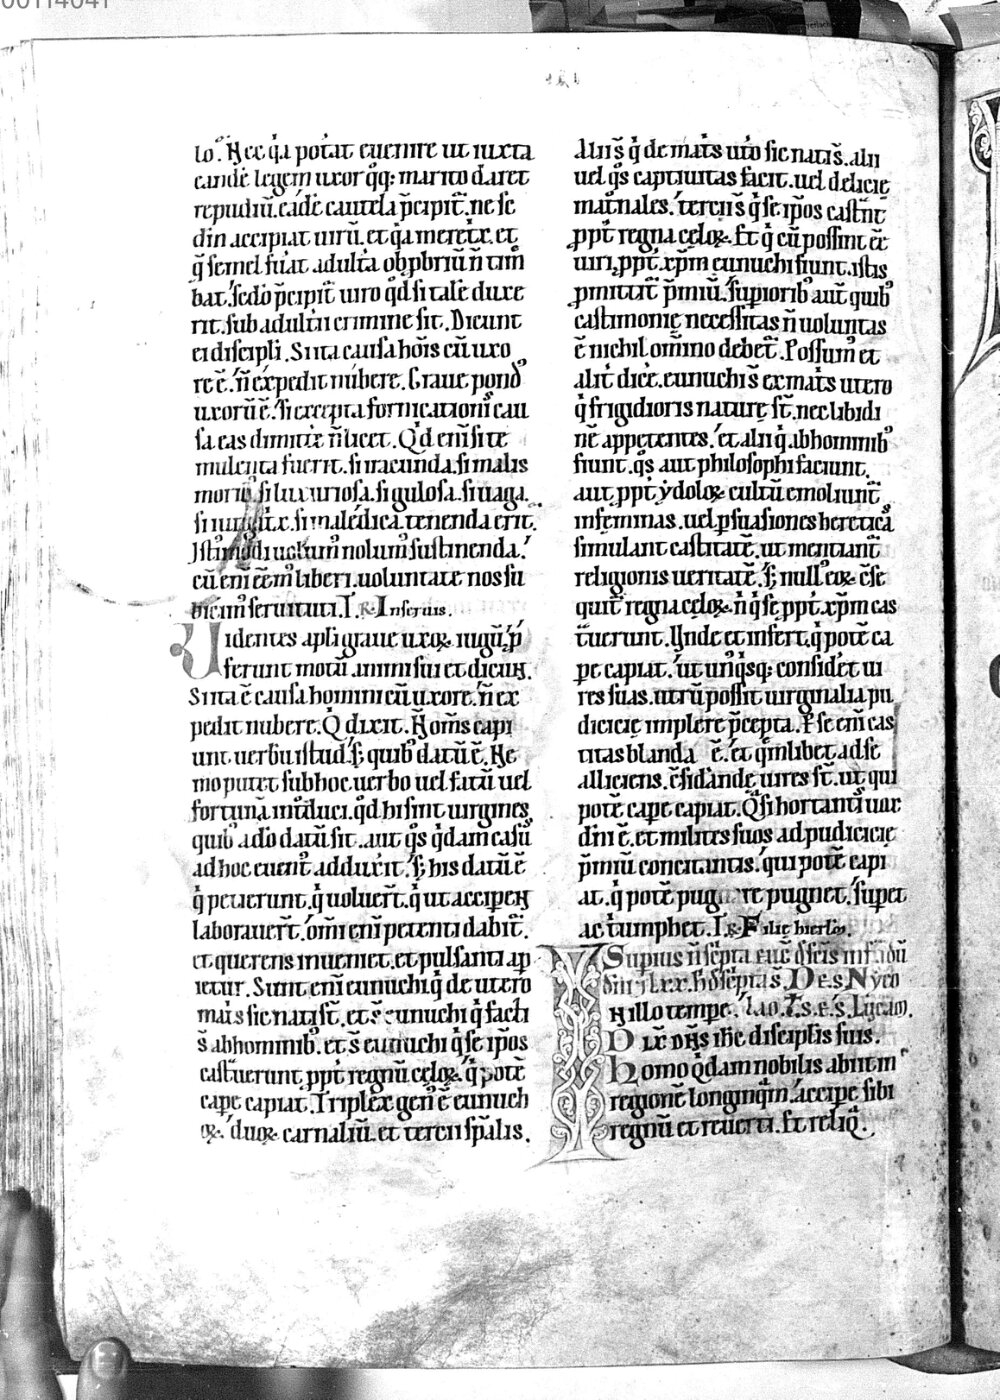 lo. Hec q̇a pot̓at euenire ut iuxta
eandē legem uxor q̊q; marito daret
repudiū. eadē cautela p̄cipit̄. ne se
din accipiat uirū. et q̇a meret̓x. et
q̄ semel fūat adult̓a obp̱briū ñ tim̄
bat. sedo p̄cipit̄ uiro qđ si talē duxe
rit. sub adult̓ii crimine sit. Dicunt
ei discipli. Si ita causa hoı̄s cū uxo
re ē. ñ expedit nubere. Graue pond᾽
uxorū ē. si excepta fornicationı̄ cau
sa eas dimitt̓e ñ licet. Qđ enı̄ si te
mulenta fuerit. si iracunda. si malis
morib᾽ si luxuriosa. si gulosa. si uaga.
si iurgat̓x. si maledica. tenenda erit.
cū enı̄ eēm᾽ liberi. uoluntate nos su
bieim᾽ seruituti. I. R. In seruis.
Videntes apli graue uxoꝝ iugū. p̱
ferunt motū animi sui et dicun̄t.
Si ita ē causa homini cū uxore. ñ ex
pedit nubere. Q dixit. Ñ om̄s capi
unt uerbū istud. s; quib᾽ datū ē. Ne
mo putet sub hoc uerbo uel fatū uel
fortunā int̓duci. qđ hi sint uirgines
quib᾽ a dō datū sit. aut q̊s q̇dam casū
ad hoc euent᾽ adduxit. s; his datū ē
q̇ petierunt. q̇ uoluer̄t. q̇ ut acciperen̄t
laborauer̄t. om̄i enı̄ petenti dabit̄.
et querens inueniet. et pulsanti ap
ietur. Sunt enı̄ eunuchi q̇ de utero
mat̓s sic nati s̄t. et s̄ eunuchi q̇ facti
s̄ ab hominib. et s̄ eunuchi q̇ se ip̄os
cast̓uerunt ppt̓ regnū celoꝝ. q̇ potē
cape capiat. Triplex gen᾽ ē eunuch
oꝝ. duoꝝ carnaliū. et tercii sp̄alis.
Alii s̄ q̇ de mat̓s ut̓o sic nati s̄. alii
uel q̊s captiuitas facit. uel delicie
mat̓nales. tercii s̄ q̇ se ip̄os cast̓nt
ppt̓ regna celoꝝ. Et q̇ cū possint eē
uiri. ppt̓ xp̄m eunuchi fiunt. istis
pmittit̄ p̄miū. supiorib᾽ aut̄ quib᾽
castimonie necessitas ñ uoluntas
ē nichil om̄ino debet̄. Possum᾽ et
alit̓ dic̓e. eunuchi s̄ ex mat̓s utero
q̇ frigidioris nature s̄t. nec libidi
nē appetentes. et alii q̇ ab hominib᾽
fiunt. q̊s aut philosophi faciunt.
aut ppt̓ ydoloꝝ cultū emoliunt̄
in feminas. uel psuasiones heretica
simulant castitatē. ut mentiant̄
religionis ueritatē. S; null᾽ eoꝝ c̄se
quit̄ regna celoꝝ. ñ q̇ se ppt̓ xp̄m cas
t̓uerunt. Vnde et infert. q̇ potē ca
pe capiat. ut un᾽q̇sq; considet̓ ui
res suas. utrū possit uirginalia pu
dicicie implere p̄cepta. P se enı̄ cas
titas blanda ē. et q̊mlibet ad se
alliciens. s; c̄sid̓ande uires s̄t. ut qui
potē cape capiat. Q̊si hortant̓ uox
dñi ē. et milites suos ad pudicicie
p̄miū concitantis. qui potē cape capi
at. q̇ potē pugnare pugnet. supet
ac triumphet. I. R. Filie hierlm̄.
In illo tempe.
Dix̄ dn̄s ihc discipl̄is suis.
Homo q̇dam nobilis abiit in
regionē longinq̄m accipe sibi
regnū et reuerti. Et reliq̄.